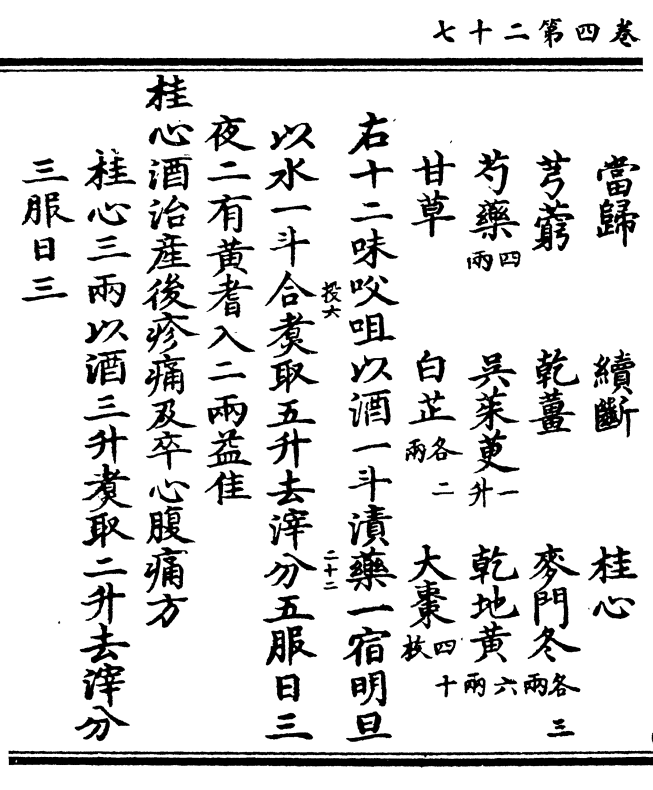 卷四第二十七
當歸 續斷 桂心
芎藭 乾薑 麥門冬各三兩
芍藥四兩 吳茱萸一升 乾地黃六兩
甘草 白芷各二兩 大棗四十枚
右十二味㕮咀以酒一斗漬藥一宿明旦
投六 二十二
以水一斗合煑取五升去滓分五服日三
夜二有黃耆入二兩益佳
桂心酒治產後疹痛及卒心腹痛方
桂心三兩以酒三升煑取二升去滓分
三服日三